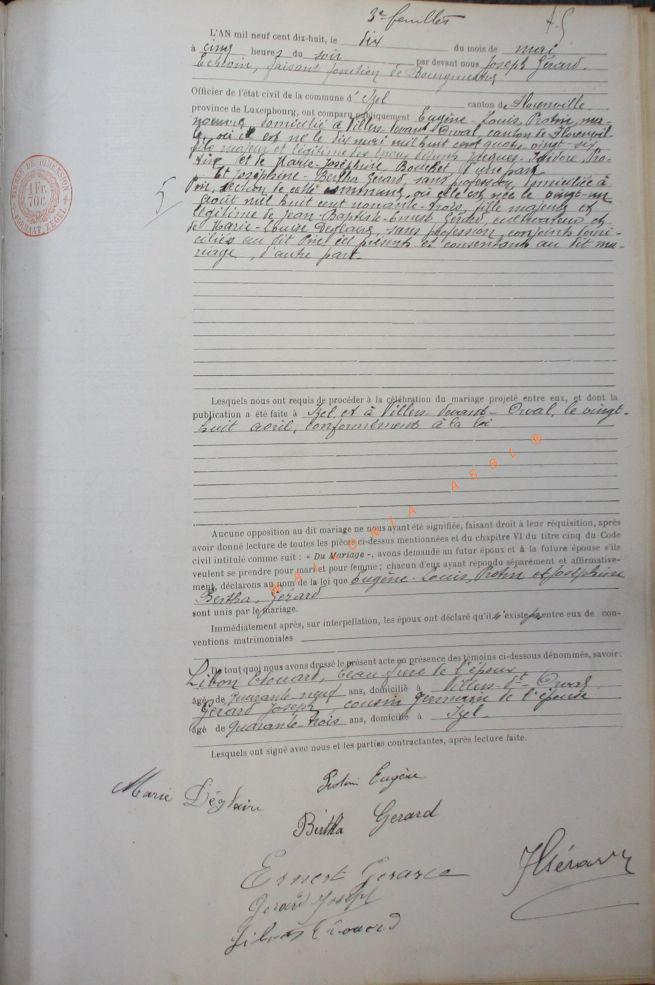 3e feuillet
L'AN mil neuf cent dix-huit, le dix du mois de mai
à cinq heures du soir par devant nous Joseph Gérard,
Echevin, faisant fonction de Bourgmestre
Officier de l'état civil de la commune d' Izel canton de Florenville
province de Luxembourg, ont comparu publiquement Eugène-Louis, Protin, ma-
noeuvre, domicilié à Villers devant Orval, canton de Florenvil-
le, où il est né le dix mai mil huit cent quatre vingt-six,
fils majeur et légitime des époux défunts Jacques-Isidore, Pro-
tin, et de Marie-Joséphine, d'une part.
Et Joséphine-Bertha Gérard, sans profession, domiciliée à
Pin, section de cette commune, où elle est née le vingt-un
août mil huit cent nonante-trois, fille majeure et
légitime de Jean-Baptiste-Ernest Gérard, cultivateur et
de Marie-Louise Déglaire, sans profession, conjoints domi-
ciliés au dit Pin, ici présents et consentants au dit ma-
riage, d'autre part.
5
Lesquels nous ont requis de procéder à la célébration du mariage projeté entre eux, et dont la
publication a été faite à Izel et à Villers devant-Orval, le vingt-
huit avril, conformément à la loi
Aucune opposition au dit mariage ne nous ayant été signifiée, faisant droit à leur réquisition, après
avoir donné lecture de toutes les pièces ci-dessus mentionnées et du chapitre VI du titre cinq du Code
civil intitulé comme suit : « Du Mariage », avons demandé au futur époux et à la future épouse s'ils
veulent se prendre pour mari et pour femme ; chacun d'eux ayant répondu séparément et affirmative-
ment, déclarons au nom de la loi que Eugène-Louis, Protin et Joséphine
Bertha, Gérard
sont unis par le mariage.
Immédiatement après, sur interpellation, les époux ont déclaré qu'il n'existe pas entre eux de con-
ventions matrimoniales
De tout quoi nous avons dressé le présent acte en présence des témoins ci-dessous dénommés, savoir :
Libon Edouard, beau-frère de l'époux
âgé de quarante-neuf ans, domicilié à Villers-dt-Orval
Gérard Joseph, cousin germain de l'épouse
âgé de quarante-trois ans, domicilié à Izel.
Lesquels ont signé avec nous et les parties contractantes, après lecture faite.
Marie Déglaire
Protin Eugène
Bertha Gerard
Ernest Gerard
JGérard
Gerard Joseph
Libon Edouard